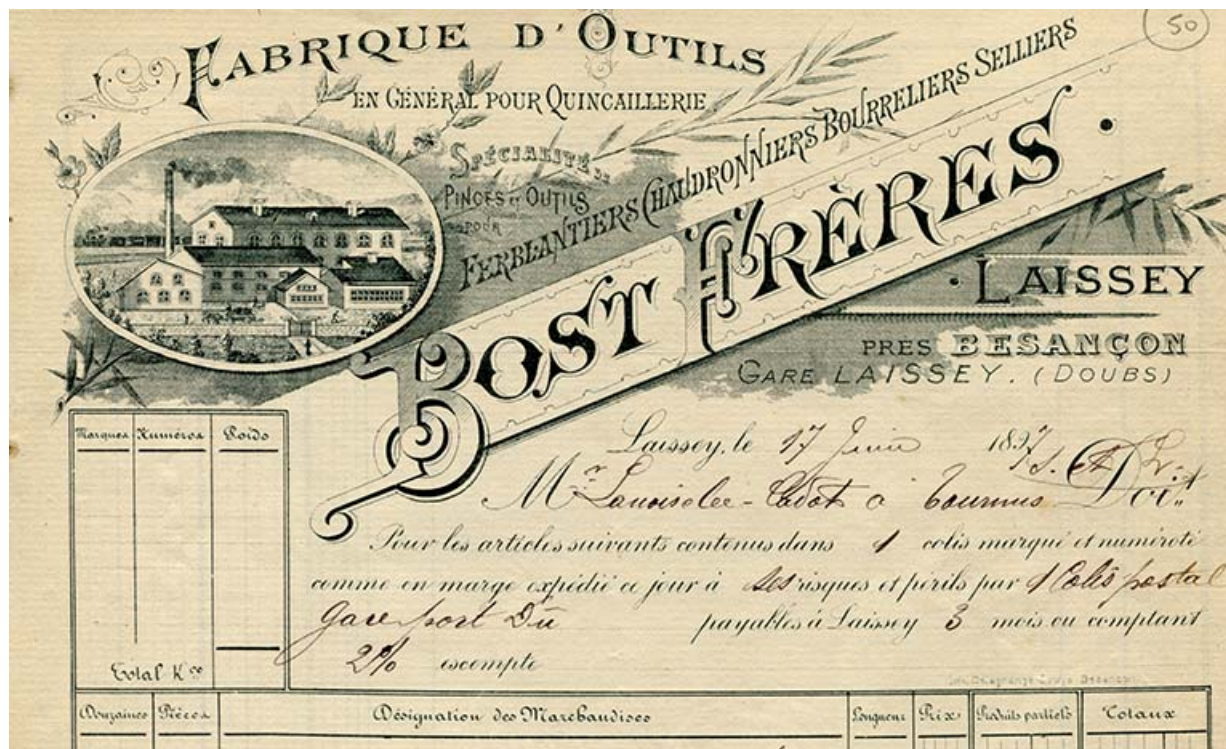 50
FABRIQUE D'OUTILS
EN GÉNÉRAL POUR QUINCAILLERIE
SPÉCIALITÉ DE
PINCES ET OUTILS
POUR
FERBLANTIERS CHAUDRONNIERS BOURRELIERS SELLIERS
BOST FRÈRES.
LAISSEY
PRES BESANÇON
GARE LAISSEY. (DOUBS)
Marques Numéros Poids
Laissey, le 17 Juin 1897
Mr à Tournus Doit
Pour les articles suivants contenus dans 1 colis marqué et numéroté
comme en marge expédié ce jour à ses risques et périls par 1 Colis postal
gare port Dû payables à Laissey 3 mois ou comptant
2% escompte
Total Kos
Douzaines Pièces Désignation des Marchandises Longueur Prix Produits partiels Totaux